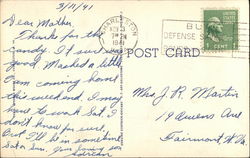 3/11/41
Dear Mother,
Thanks for the
candy. It sure
good. Mached a little.
I am coming home
this weekend. I may
have to work Sat. I
don't know for sure.
But I'll be in sometime
Sat or Sun. Your loving son
CHARLESTON
1941
BU
DEFENSE
STAMPS
1 CENT
POST CARD
Mrs. J. R. Martin
19 Owens Ave
Fairmont, W.Va.